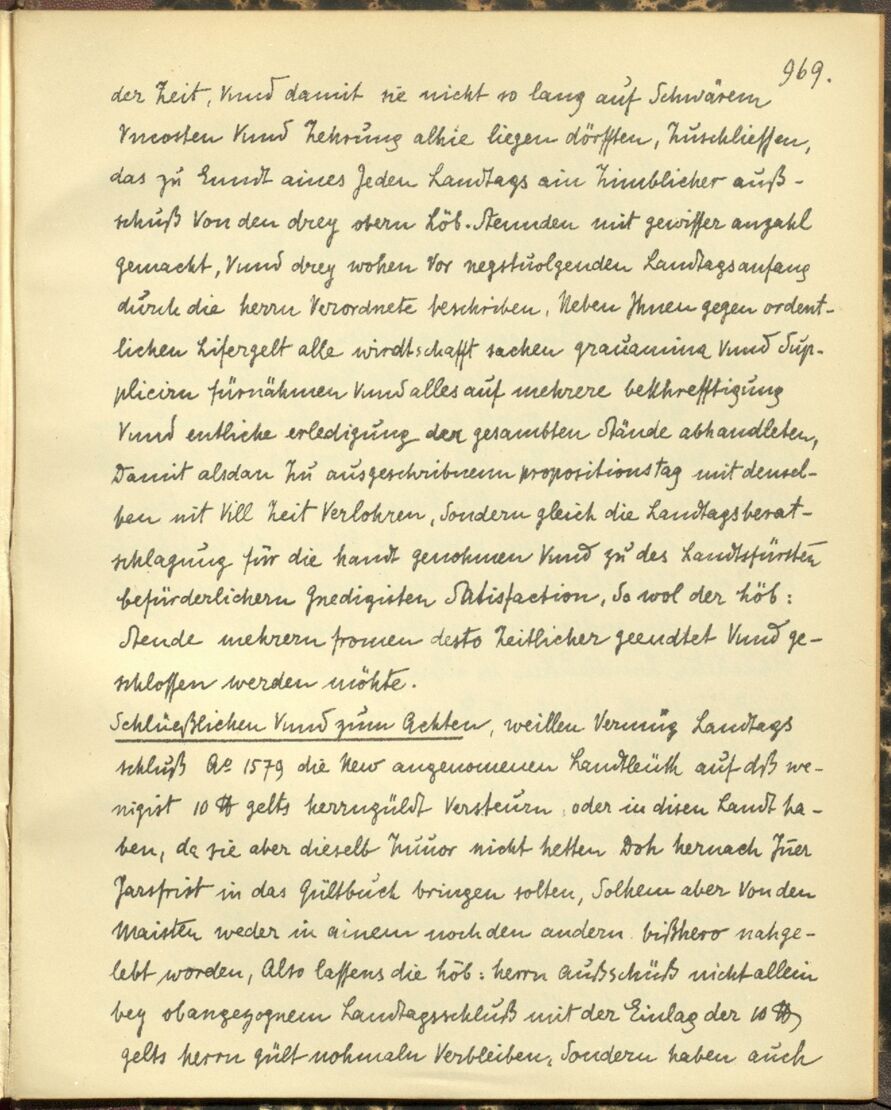 969.
der Zeit, Vnnd damit sie nicht so lang auf Schwärem
Vncosten Vnnd Zehrung alhie liegen dörfften, Zuschlieſſen,
das zu Enndt aines Jeden Landtags ain Zimblicher auß-
schuß Von den drey obern Löb. Stennden mit gewiſſer anzahl
gemacht, Vnnd drey wohen Vor negstuolgenden Landtagsanfang
durch die herrn Verordnete beschriben, Neben Jhnen gegen ordent-
lichen Lifergelt alle wirdtschafft sachen grauamina Vnnd Sup-
plicirn fürnähmen Vnnd alles auf mehrere bekhrefftigung
Vnnd entliche erledigung der gesambten Stände abhandleten,
Damit alsdan Zu ausgeschribnenn propositionstag mit densel-
ben nit Vill Zeit Verlohren, Sondern gleich die Landtagsberat-
schlagung für die handt genohmen Vnnd zu des Landtsfürsten
befürderlichern Gnedigisten Satisfaction, So wol der Löb:
Stende mehrern fromen desto Zeitlicher geendtet Vnnd ge-
schloſſen werden möhte.
Schlüeßlichen Vnnd zum Achten, weillen Vermüg Landtags
schluß Ao 1579 die New angenomenen Landtleüth auf dß we-
nigist 10 ℔ gelts herrngüldt Versteurn, oder in disen Landt ha-
ben, da sie aber dieselb Zuuor nicht hetten Doh hernach Jner
Jarsfrist in das Gültbuch bringen solten, Solhem aber Von den
Maisten weder in ainem noch den andern bißhero nahge-
lebt worden, Also laſſens die Löb: herrn Außschüß nicht allein
bey obangezognem Landtagsschluß mit der Einlag der 10 ℔
gelts herrn gült nohmaln Verbleiben, Sondern haben auch